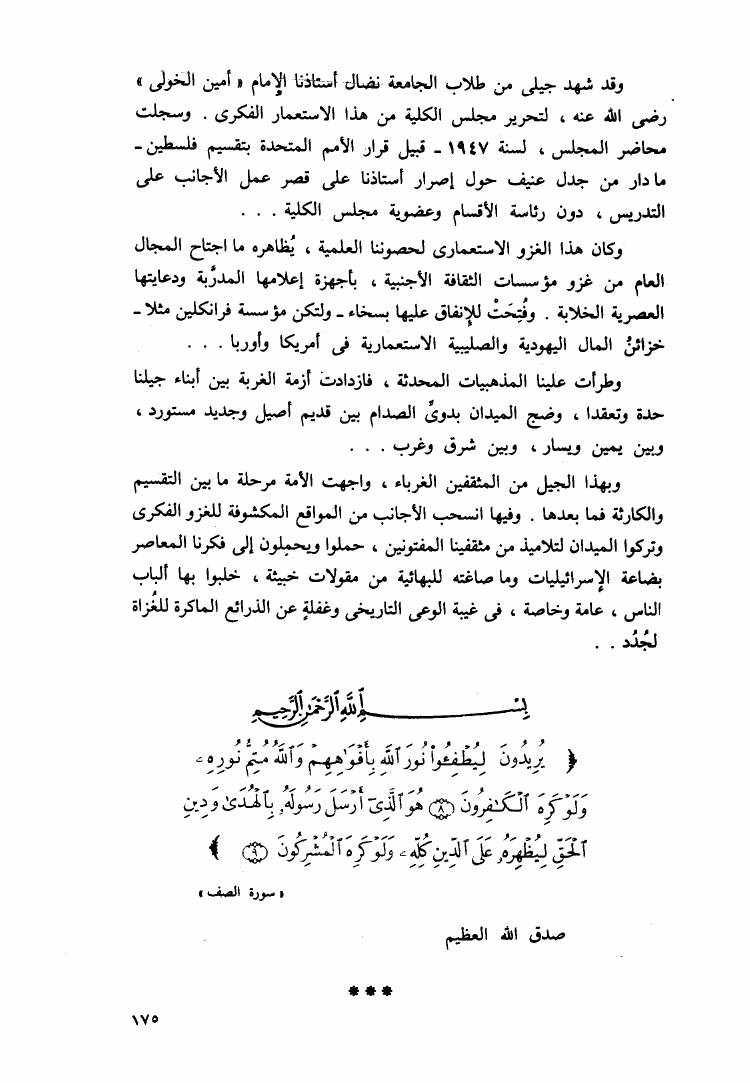 وقد شهد جيلى من طلاب الجامعة نضال أستاذنا الإمام « أمين الخولى »
رضى الله عنه ، لتحرير مجلس الكلية من هذا الاستعمار الفكرى . وسجلت
محاضر المجلس ، لسنة ١٩٤٧ ـ قبيل قرار الأمم المتحدة بتقسيم فلسطين ـ
ما دار من جدل عنيف حول إصرار أستاذنا على قصر عمل الأجانب على
التدريس ، دون رئاسة الأقسام وعضوية مجلس الكلية . . .
وكان هذا الغزو الاستعمارى لحصوننا العلمية ، يُظاهره ما اجتاح المجال
العام من غزو مؤسسات الثقافة الأجنبية ، بأجهزة إعلامها المدرَّبة ودعايتها
العصرية الخلابة . وفُتِحَتْ للإنفاق عليها بسخاء ـ ولتكن مؤسسة فرانكلين مثلا ـ
خزائنُ المال اليهودية والصليبية الاستعمارية فى أمريكا وأوربا . . .
وطرأت علينا المذهبيات المحدثة ، فازدادت أزمة الغربة بين أبناء جيلنا
حدة وتعقدا ، وضج الميدان بدوىِّ الصدام بين قديم أصيل وجديد مستورد ،
وبين يمين ويسار ، وبين شرق وغرب . . .
وبهذا الجيل من المثقفين الغرباء ، واجهت الأمة مرحلة ما بين التقسيم
والكارثة فما بعدها . وفيها انسحب الأجانب من المواقع المكشوفة للغزو الفكرى
وتركوا الميدان لتلاميذ من مثقفينا المفتونين ، حملوا ويحملون إلى فكرنا المعاصر
بضاعة الإسرائيليات وما صاغته للبهائية من مقولات خبيثة ، خلبوا بها ألباب
الناس ، عامة وخاصة ، فى غيبة الوعى التاريخى وغفلةٍ عن الذرائع الماكرة للغُزاة
لجُدُد . .
بِسْمِ اللَّهِ الرَّحْمَٰنِ الرَّحِيمِ
﴿ يُرِيدُونَ لِيُطْفِـُٔوا۟ نُورَ ٱللَّهِ بِأَفْوَٰهِهِمْ وَٱللَّهُ مُتِمُّ نُورِهِۦ
وَلَوْ كَرِهَ ٱلْكَـٰفِرُونَ ۝٨ هُوَ ٱلَّذِىٓ أَرْسَلَ رَسُولَهُۥ بِٱلْهُدَىٰ وَدِينِ
ٱلْحَقِّ لِيُظْهِرَهُۥ عَلَى ٱلدِّينِ كُلِّهِۦ وَلَوْ كَرِهَ ٱلْمُشْرِكُونَ ۝٩ ﴾
« سورة الصف »
صدق الله العظيم
***
١٧٥